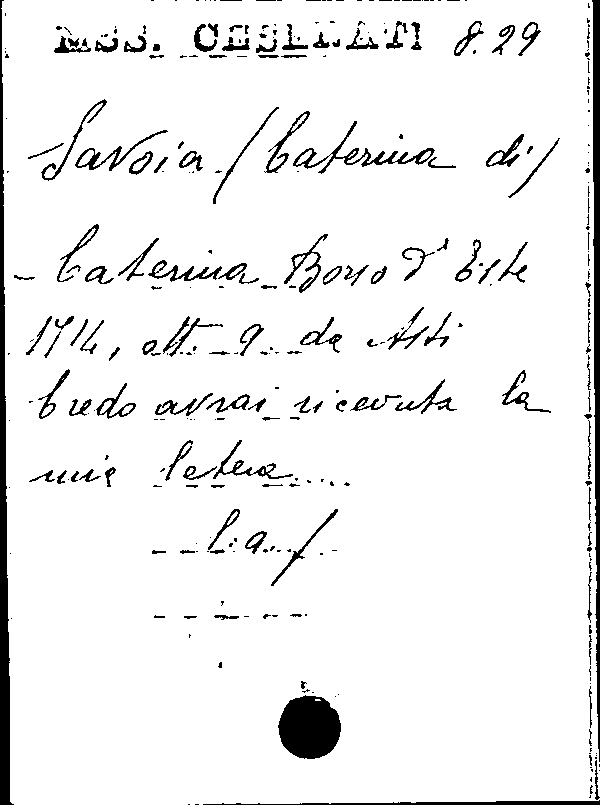 MSS. CESELLATI 8.29
Savoia (Caterina di)
- Caterina Borso d'Este
1714, ott. 9. da Asti
Credo avrai ricevuta la
mia letera....
l.a.f